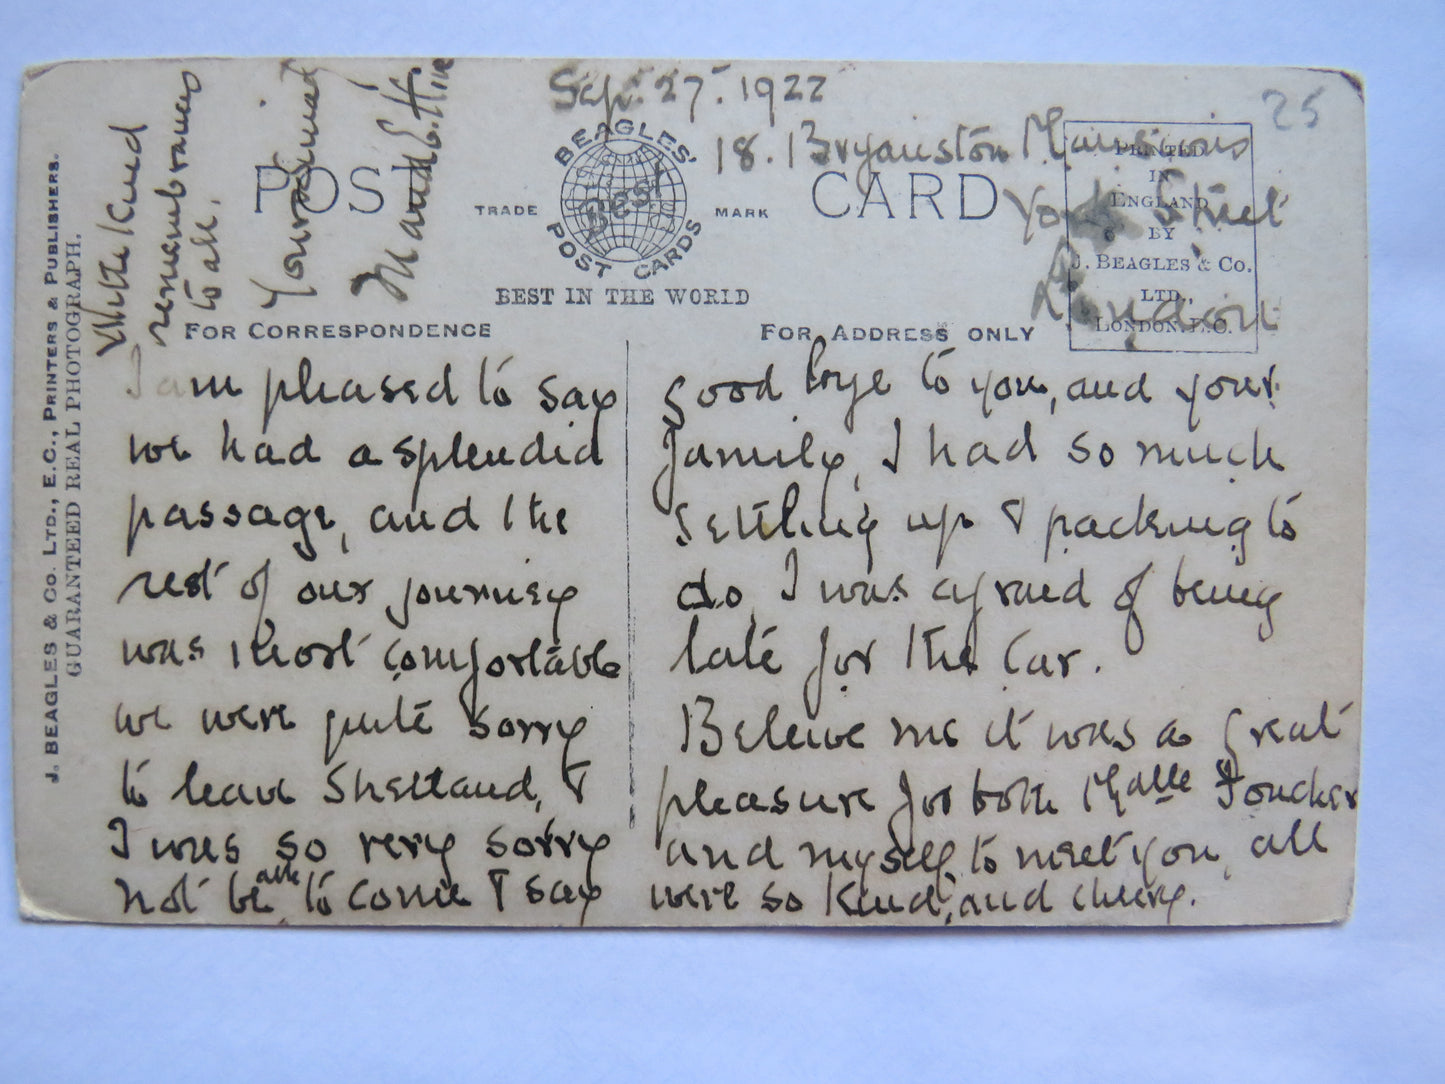 Sep. 27. 1922
18. Bryanston Mansions
York Street
London
25
POST CARD
BEAGLES'
Best
POST CARDS
TRADE MARK
BEST IN THE WORLD
PRINTED
IN
ENGLAND
BY
J. BEAGLES & Co.
LTD.,
LONDON E.C.
FOR CORRESPONDENCE
FOR ADDRESS ONLY
J. BEAGLES & CO. LTD., E.C., PRINTERS & PUBLISHERS.
GUARANTEED REAL PHOTOGRAPH.
I am pleased to say
we had a splendid
passage, and the
rest of our journey
was most comfortable
we were quite sorry
to leave Shetland, &
I was so very sorry
not be able to come & say
good bye to you, and your
family, I had so much
settling up & packing to
do, I was afraid of being
late for the car.
Beleive me it was a great
pleasure for both Mdlle
and myself, to meet you, all
were so kind, and cheery.
With kind
remembrances
to all.
Yours
Maud E.